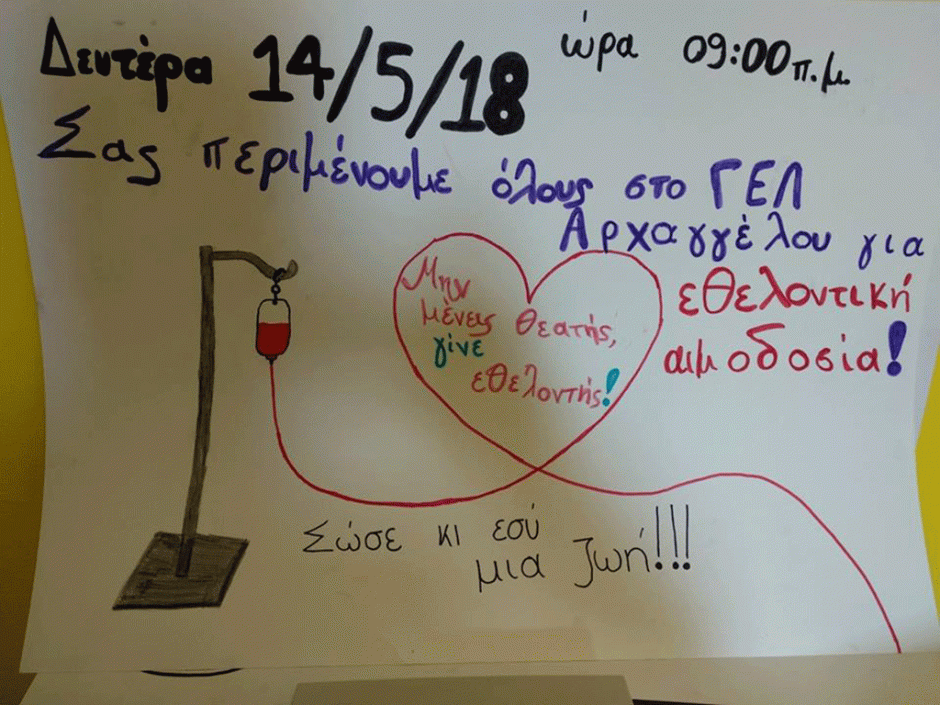 Δευτέρα 14/5/18 ώρα 09:00 π.μ.
Σας περιμένουμε όλους στο ΓΕΛ
Αρχαγγέλου για
εθελοντική
αιμοδοσία!
Μην
μένεις θεατής,
γίνε
εθελοντής!
Σώσε κι εσύ
μια ζωή!!!